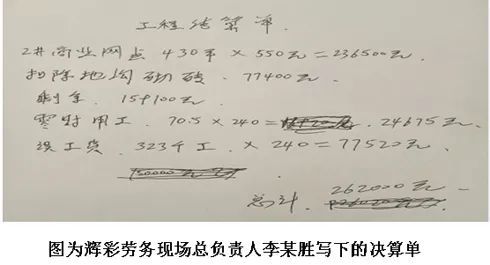 工程结算单.
2#商业网点 430平 × 550元=236500元.
扣除地沟砌砖. 77400元.
剩余. 159100元.
零时用工. 70.5 × 240= 24675元.
误工费. 323个工. × 240=77520元.
150000元
总计. 262000元
图为辉彩劳务现场总负责人李某胜写下的决算单